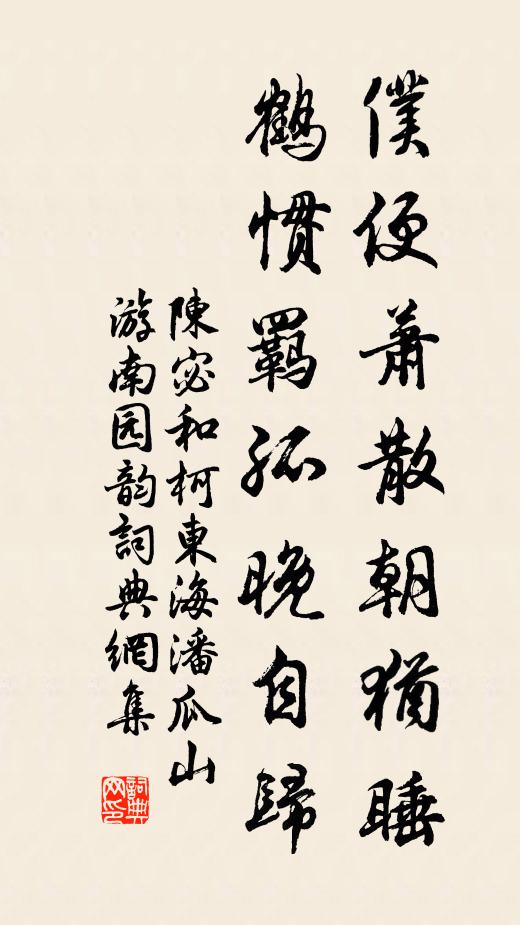 僕便蕭散朝猶睡
鶴慣羈孤晚自歸
陳宓和柯東海潘瓜山
游南园韵詞典網集
詞典网印